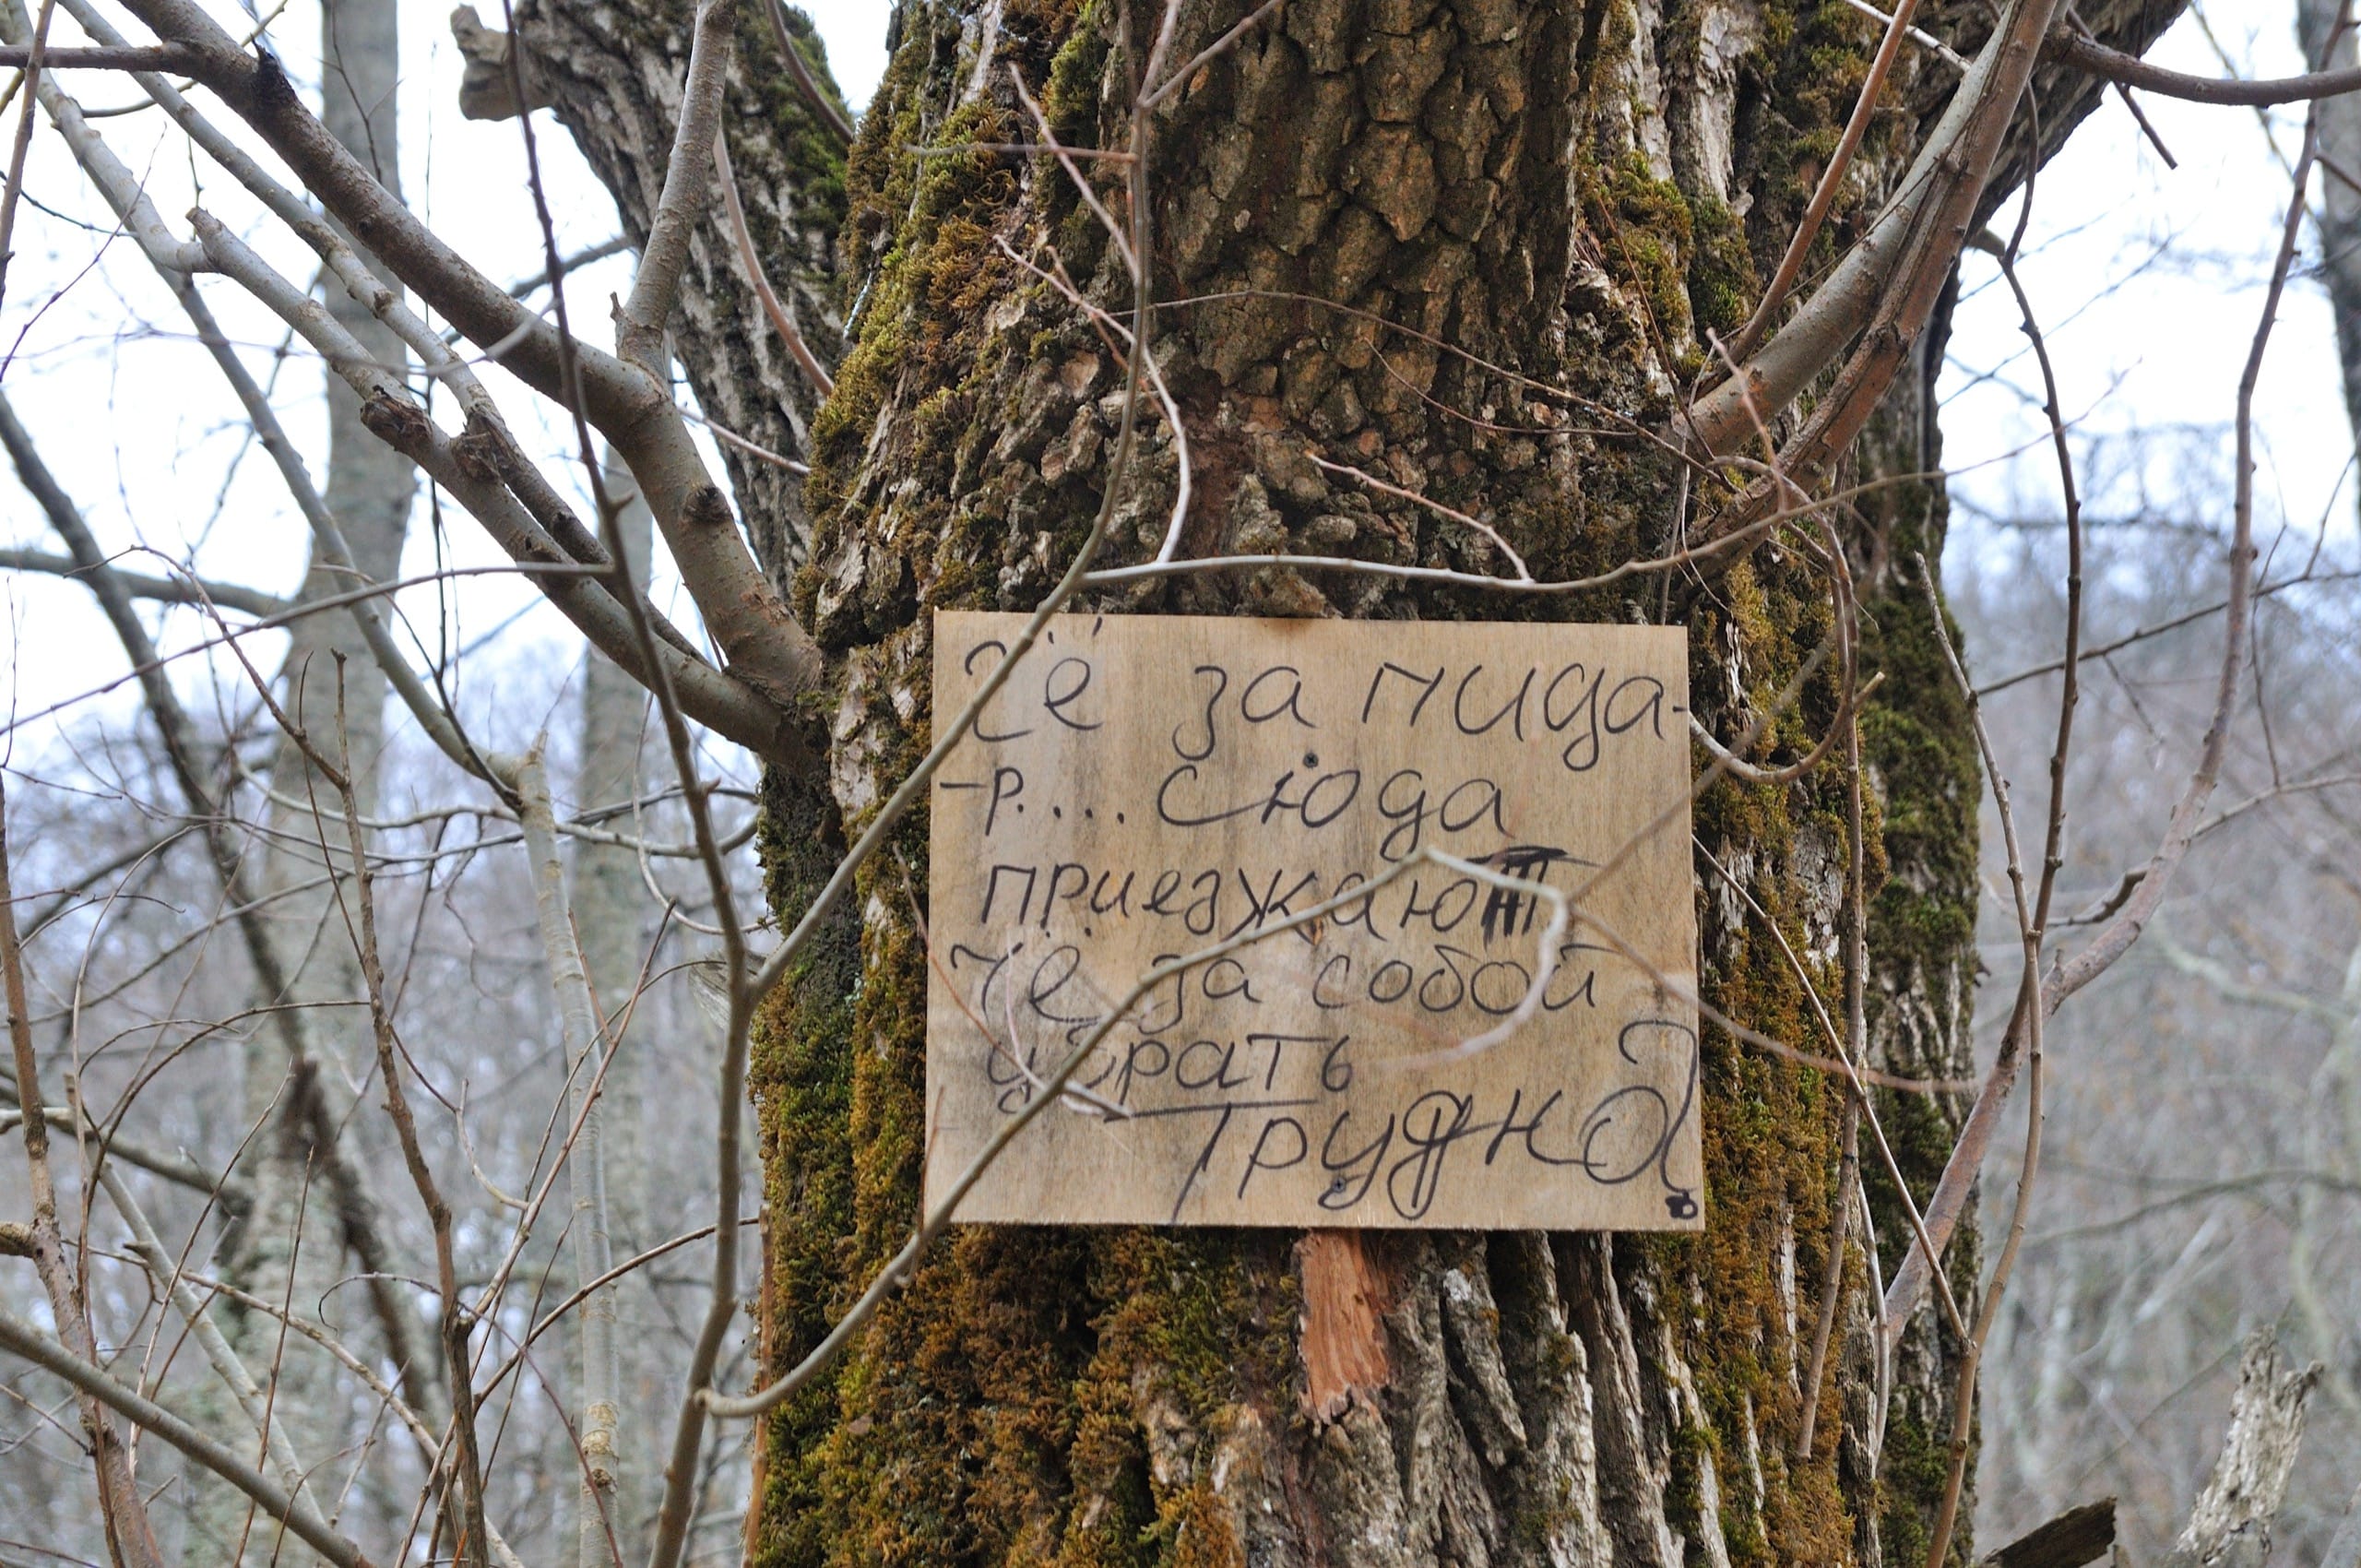 Чё за пида-
-р.... сюда
приезжают
Чё за собой
убрать
трудно?